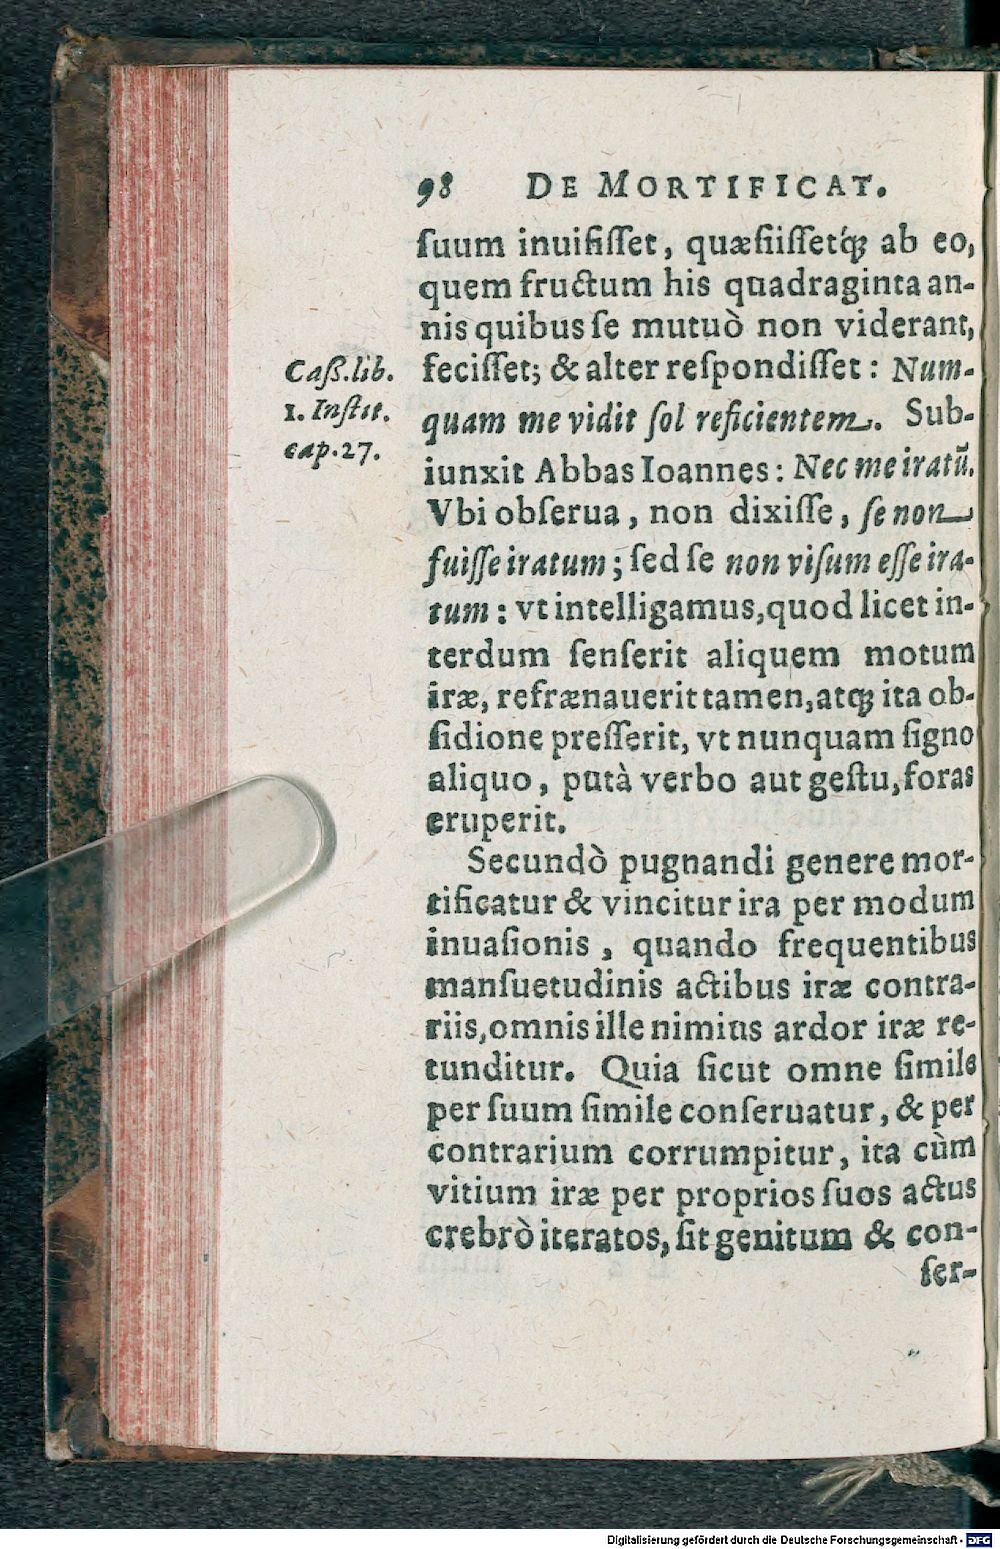 98 DE MORTIFICAT.
ſuum inuiſiſſet, quæſiiſſetq́ꝫ ab eo,
quem fructum his quadraginta an-
nis quibus ſe mutuò non viderant,
feciſſet; & alter reſpondiſſet: Num-
Caſß. lib.
1. Inſtit.
cap. 27.
quam me vidit ſol reficientem. Sub-
iunxit Abbas Ioannes: Nec me iratũ.
Vbi obſerua, non dixiſſe, ſe non
fuiſſe iratum; ſed ſe non viſum eſſe ira-
tum: vt intelligamus, quod licet in-
terdum ſenſerit aliquem motum
iræ, refrænauerit tamen, atqꝫ ita ob-
ſidione preſſerit, vt nunquam ſigno
aliquo, putà verbo aut geſtu, foras
eruperit.
Secundò pugnandi genere mor-
tificatur & vincitur ira per modum
inuaſionis, quando frequentibus
manſuetudinis actibus iræ contra-
riis, omnis ille nimius ardor iræ re-
tunditur. Quia ſicut omne ſimile
per ſuum ſimile conſeruatur, & per
contrarium corrumpitur, ita cùm
vitium iræ per proprios ſuos actus
crebrò iteratos, ſit genitum & con-
ſer-
Digitalisierung gefördert durch die Deutsche Forschungsgemeinschaft - DFG